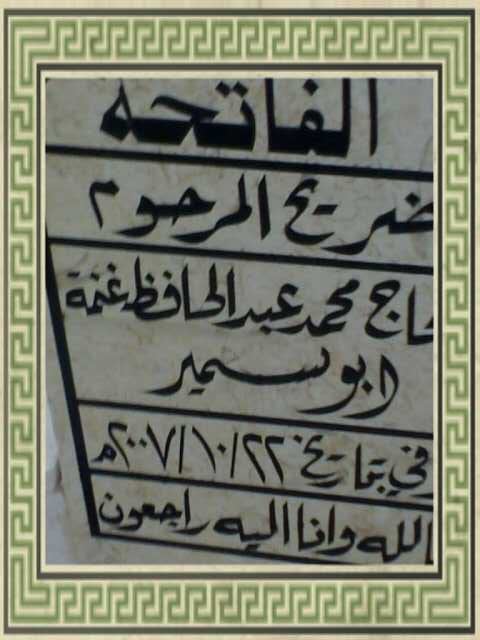 الفاتحه
ضريح المرحوم
حاج محمد عبد الحافظ غنمة
ابو سمير
في بتاريخ ٢٠٠٧/١٠/٢٢م
الله وانا اليه راجعون